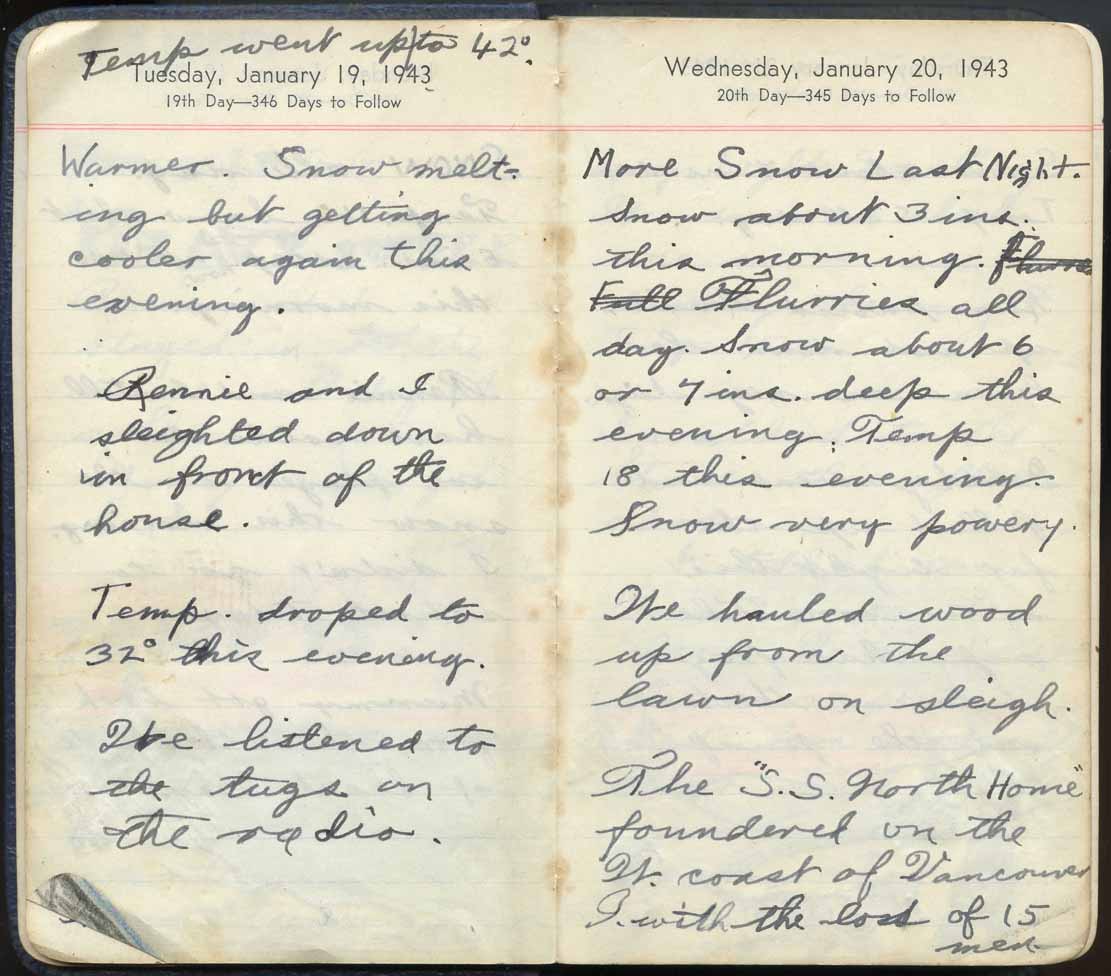 Temp went up to 42°.
Tuesday, January 19, 1943
19th Day—346 Days to Follow
Warmer. Snow melt-
ing but getting
cooler again this
evening.
Rennie and I
sleighted down
in front of the
house.
Temp. droped to
32° this evening.
We listened to
the tugs on
the radio.
Wednesday, January 20, 1943
20th Day—345 Days to Follow
More Snow Last Night.
Snow about 3 ins.
this morning. Flurre
Fall Flurries all
day. Snow about 6
or 7 ins. deep this
evening. Temp
18 this evening.
Snow very powery.
We hauled wood
up from the
lawn on sleigh.
The "S.S. North Home"
foundered on the
W. coast of Vancouver
I. with the lost of 15
men